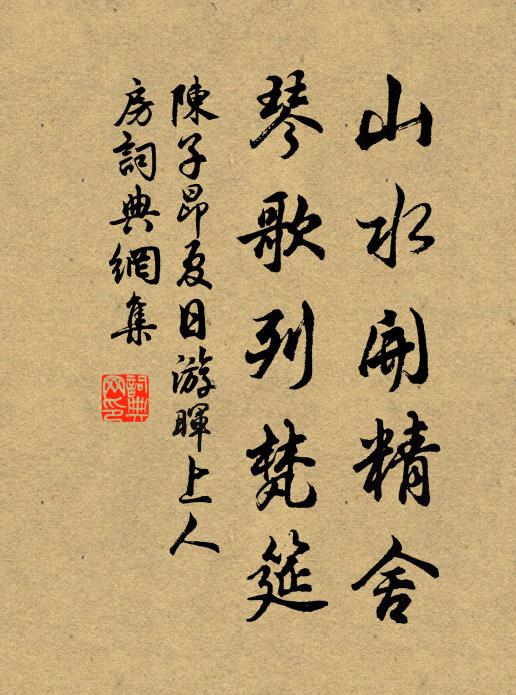 山水開精舍
琴歌列梵筵
陳子昂夏日游暉上人
房詞典網集
詞典
网印